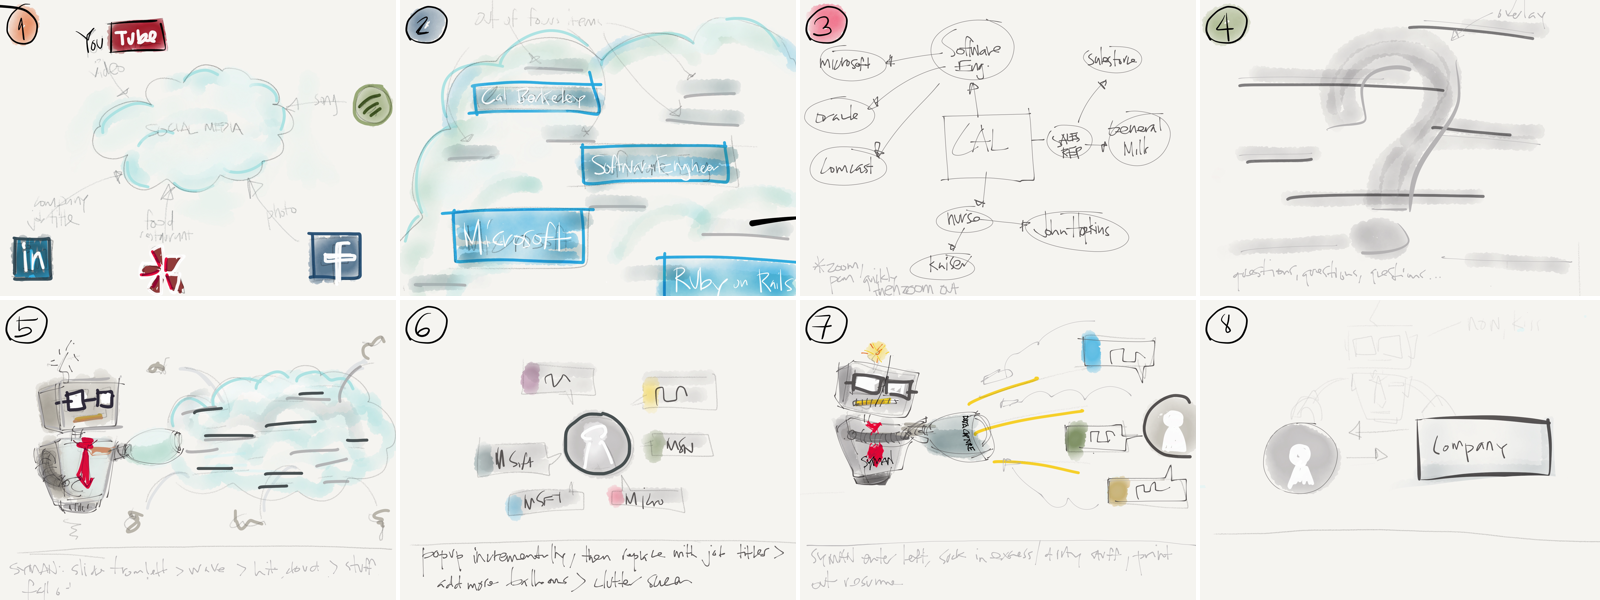 1
You Tube
video
song
SOCIAL MEDIA
company
job title
food
restaurant
photo
in
f
2
out of focus item
Cal Berkeley
Software Engineer
Microsoft
Ruby on Rails
3
Software
Eng.
Microsoft
Oracle
Comcast
CAL
SALES
REP
Salesforce
General
Mills
nurse
John Hopkins
Kaiser
*zoom,
pan quickly
then zoom out
4
overlay
?
questions, questions, questions...
5
SYMAN: slide from left > wave > hits cloud > stuff
falls
6
MSft
MSN
MSFT
Micro
popup incrementally, then replace with job titles >
add more balloons > clutter screen
7
SYMAN
SYMAN enter left, suck in excess/dirty stuff, print
out resume
8
Company